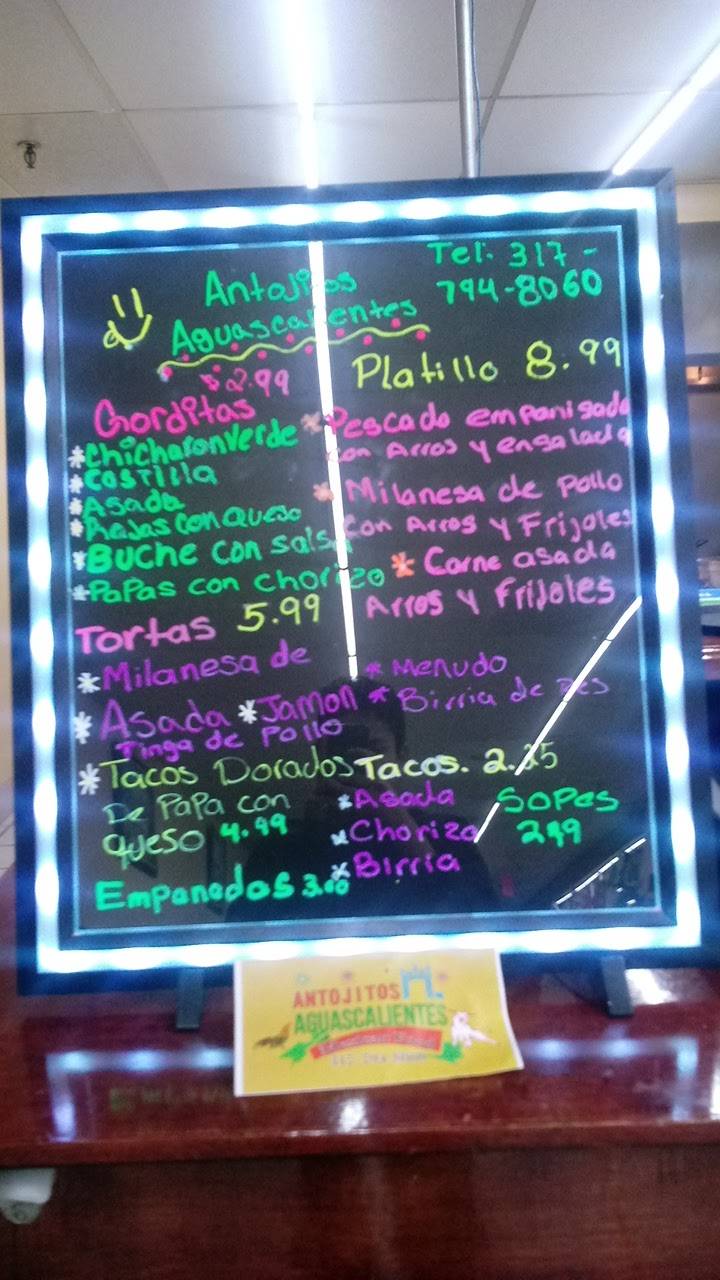 Antojitos
Aguascalientes
Tel: 317-
794-8060
$2.99
Gorditas
*Chicharon Verde
*Costilla
*Asada
*Rajas con Queso
*Buche con Salsa
*Papas con chorizo
Tortas 5.99
*Milanesa de
*Asada *Jamon
Tinga de Pollo
*Tacos Dorados
De Papa con
queso 4.99
Empanadas 3.00
Platillo 8.99
*Pescado empanisado
con Arros y ensalada
*Milanesa de Pollo
con Arros y Frijoles
*Carne asada
Arros y Frijoles
*Menudo
*Birria de Res
Tacos. 2.25
*Asada
*Chorizo
*Birria
Sopes
2.99
ANTOJITOS
AGUASCALIENTES